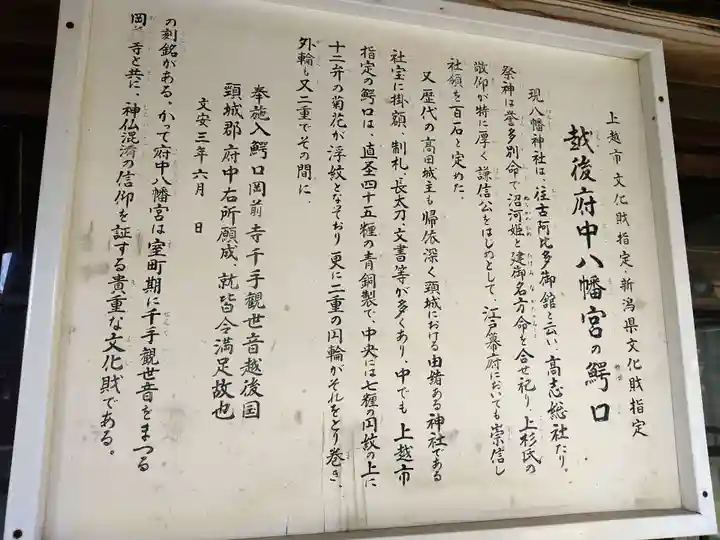 上越市文化財指定・新潟県文化財指定
越後府中八幡宮の鰐口
現八幡神社は、往古阿比多御館と云い、高志総社たり、
祭神は誉多別命で沼河姫と建御名方命を合せ祀り、上杉氏の
敬仰が特に厚く謙信公をはじめとして、江戸幕府においても崇信し
社領を百石と定めた。
又歴代の高田城主も帰依深く頸城における由緒ある神社である
社宝に掛額、制札、長太刀、文書等が多くあり、中でも上越市
指定の鰐口は、直全四十五糎の青銅製で、中央には七糎の円紋の上に
十二弁の菊花が浮紋となそおり、更に二重の円輪がそれをとり巻き、
外輪も又二重でその間に、
奉施入鰐口岡前寺千手觀世音越後国
頸城郡府中右所願成、就皆令満足故也
文安三年六月 日
の刻銘がある。かって府中八幡宮は室町期に千手觀世音をまつる
岡前寺と共に、神仏混淆の信仰を証する貴重な文化財である。